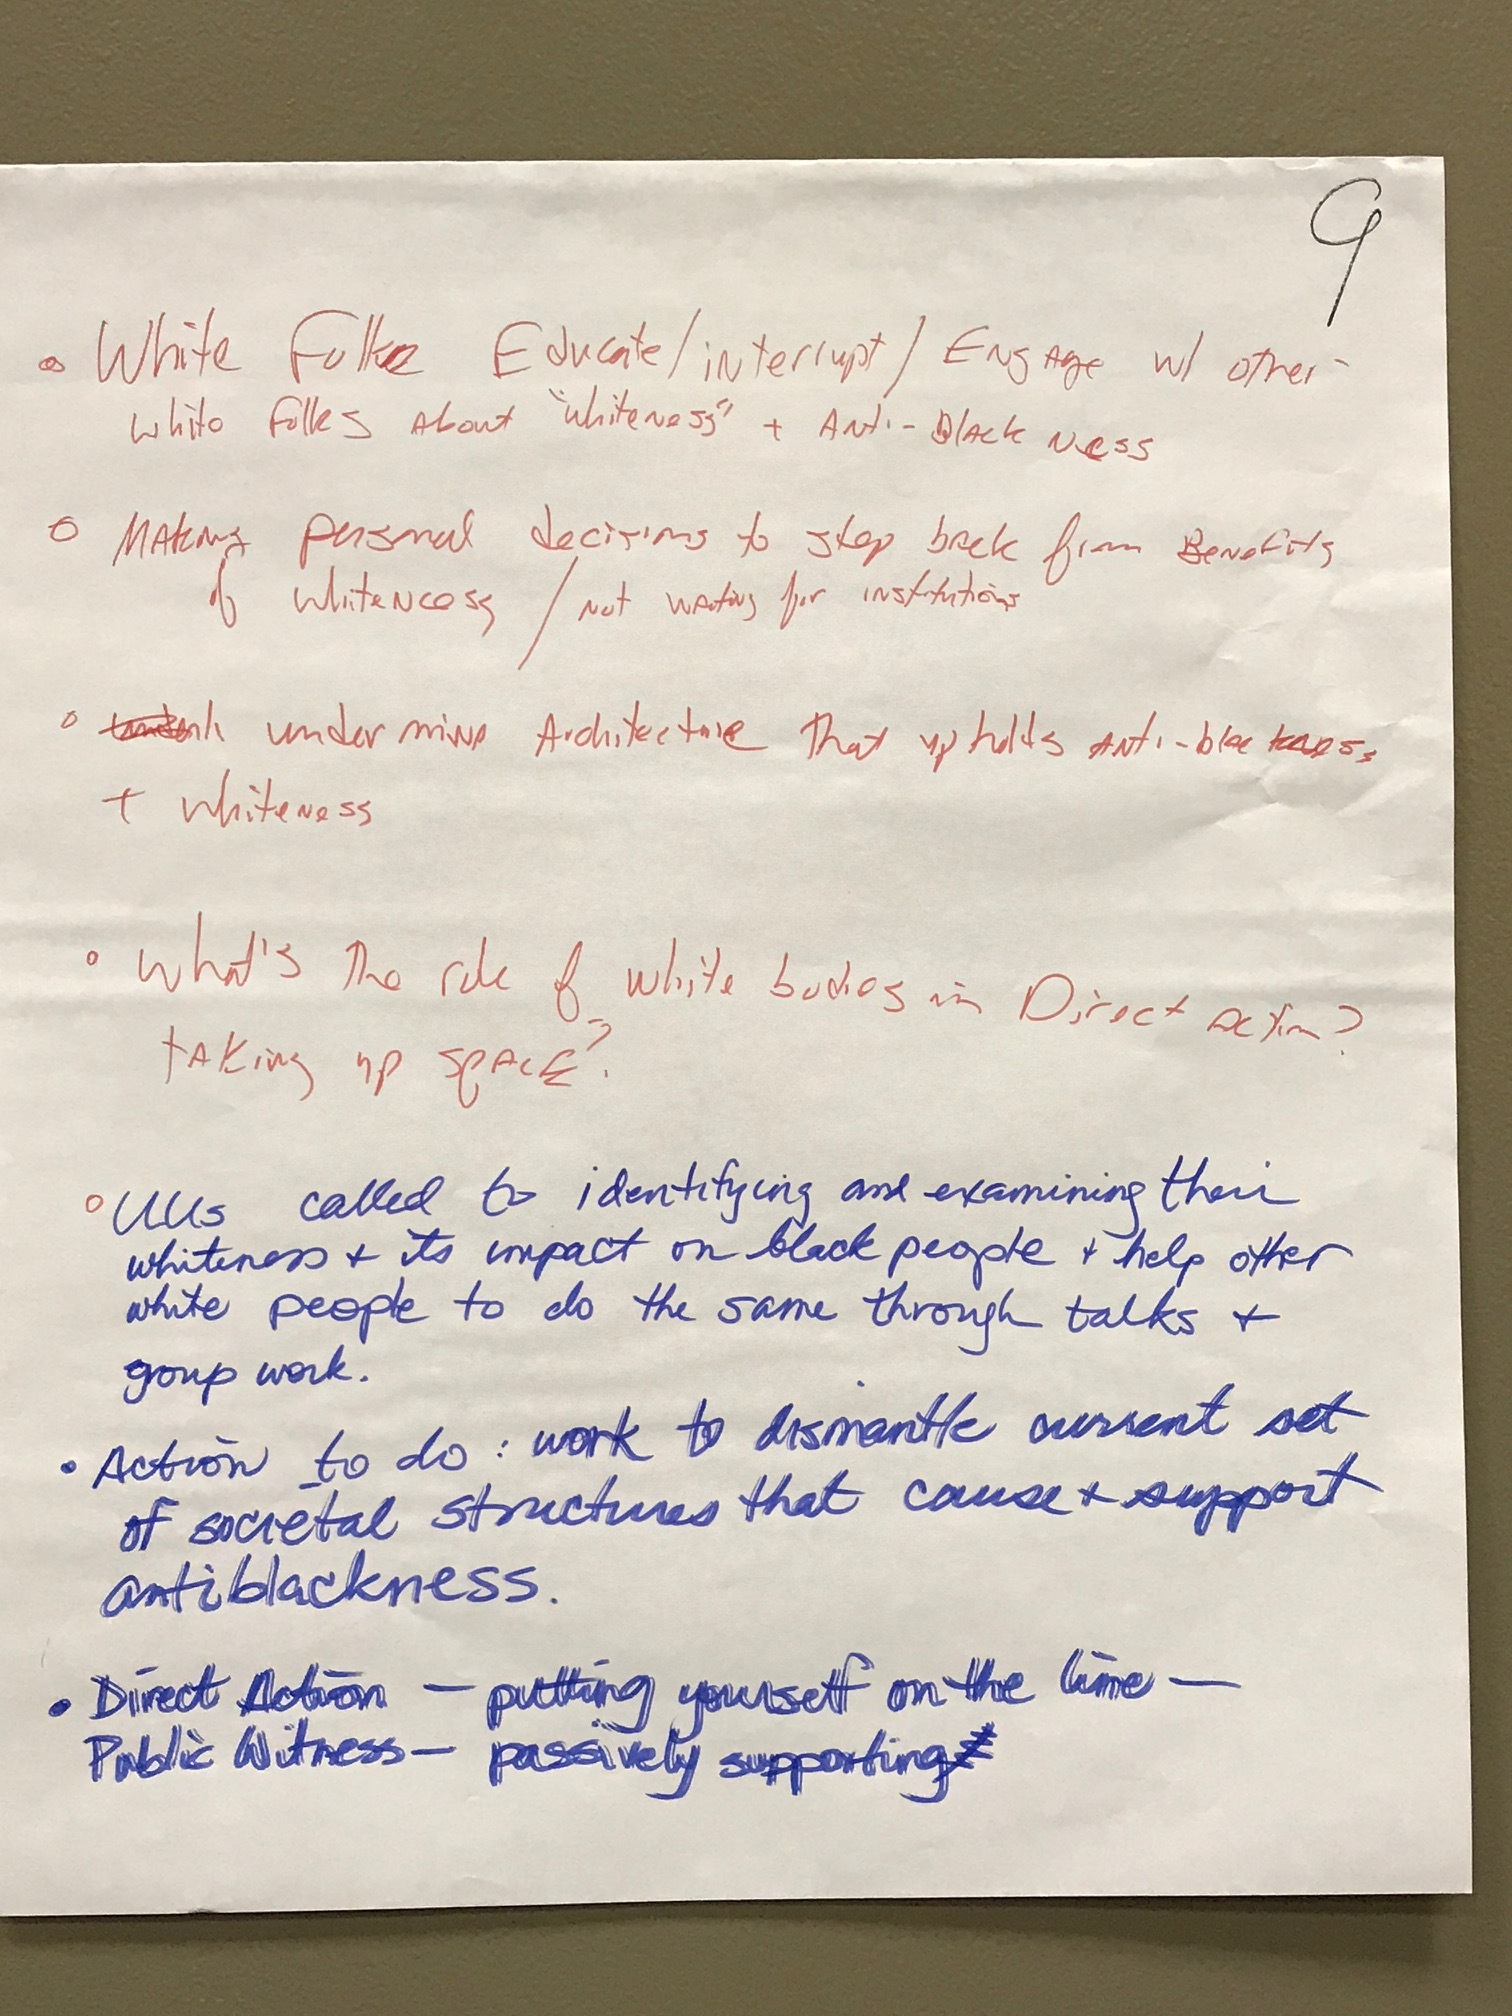 9
• White Folks Educate/interrupt/Engage w/ other
white folks about "whiteness" + Anti-Blackness
○ Making personal decisions to step back from Benefits
of whiteness / not waiting for institutions
○ undermine Architecture That upholds anti-blackness
+ whiteness
○ What's The role of white bodies in Direct action?
taking up space?
○ UUs called to identifying and examining their
whiteness + its impact on black people + help other
white people to do the same through talks +
group work.
• Action to do: work to dismantle current set
of societal structures that cause + support
antiblackness.
• Direct Action — putting yourself on the line —
Public Witness — passively supporting